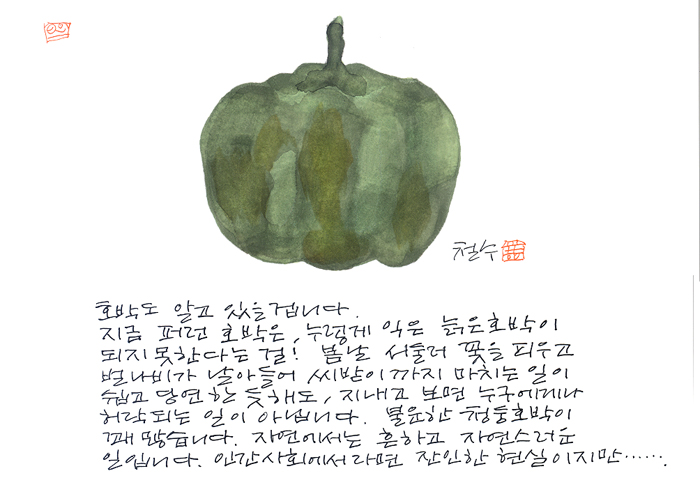 철수
호박도 알고 있을겁니다.
지금 퍼런 호박은, 누렇게 익은 늙은호박이
되지 못한다는 걸! 봄날 서둘러 꽃을 피우고
벌나비가 날아들어 씨받이까지 마치는 일이
쉽고 당연한 듯해도, 지내고 보면 누구에게나
허락되는 일이 아닙니다. 불운한 청둥호박이
꽤 많습니다. 자연에서는 흔하고 자연스러운
일입니다. 인간사회에서라면 잔인한 현실이지만…….